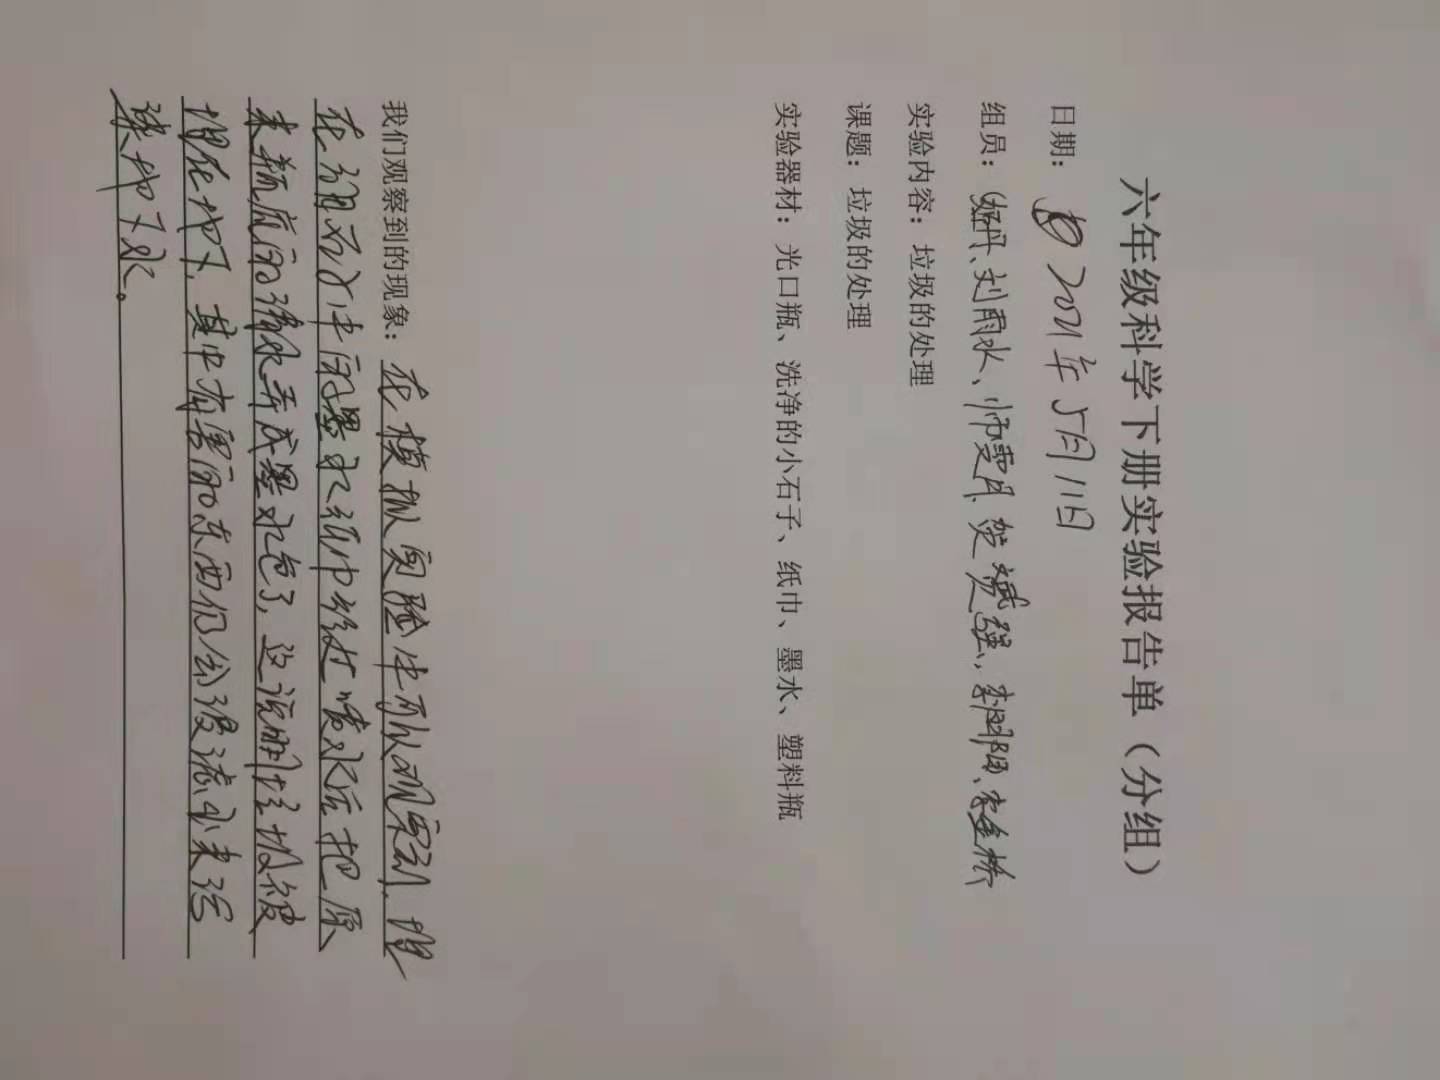 六年级科学下册实验报告单（分组）
日期：2021年5月11日
组员：刘雨水、师雯月、李朝阳、李金桥
实验内容：垃圾的处理
课题：垃圾的处理
实验器材：光口瓶、洗净的小石子、纸巾、墨水、塑料瓶
我们观察到的现象：在模拟实验中可以观察到，埋
在细石中的墨水纸巾经过喷水后把原
来瓶底的清水弄成墨水色了，这说明垃圾被
埋在地下，其中有害的东西仍会浸流出来污
染地下水。